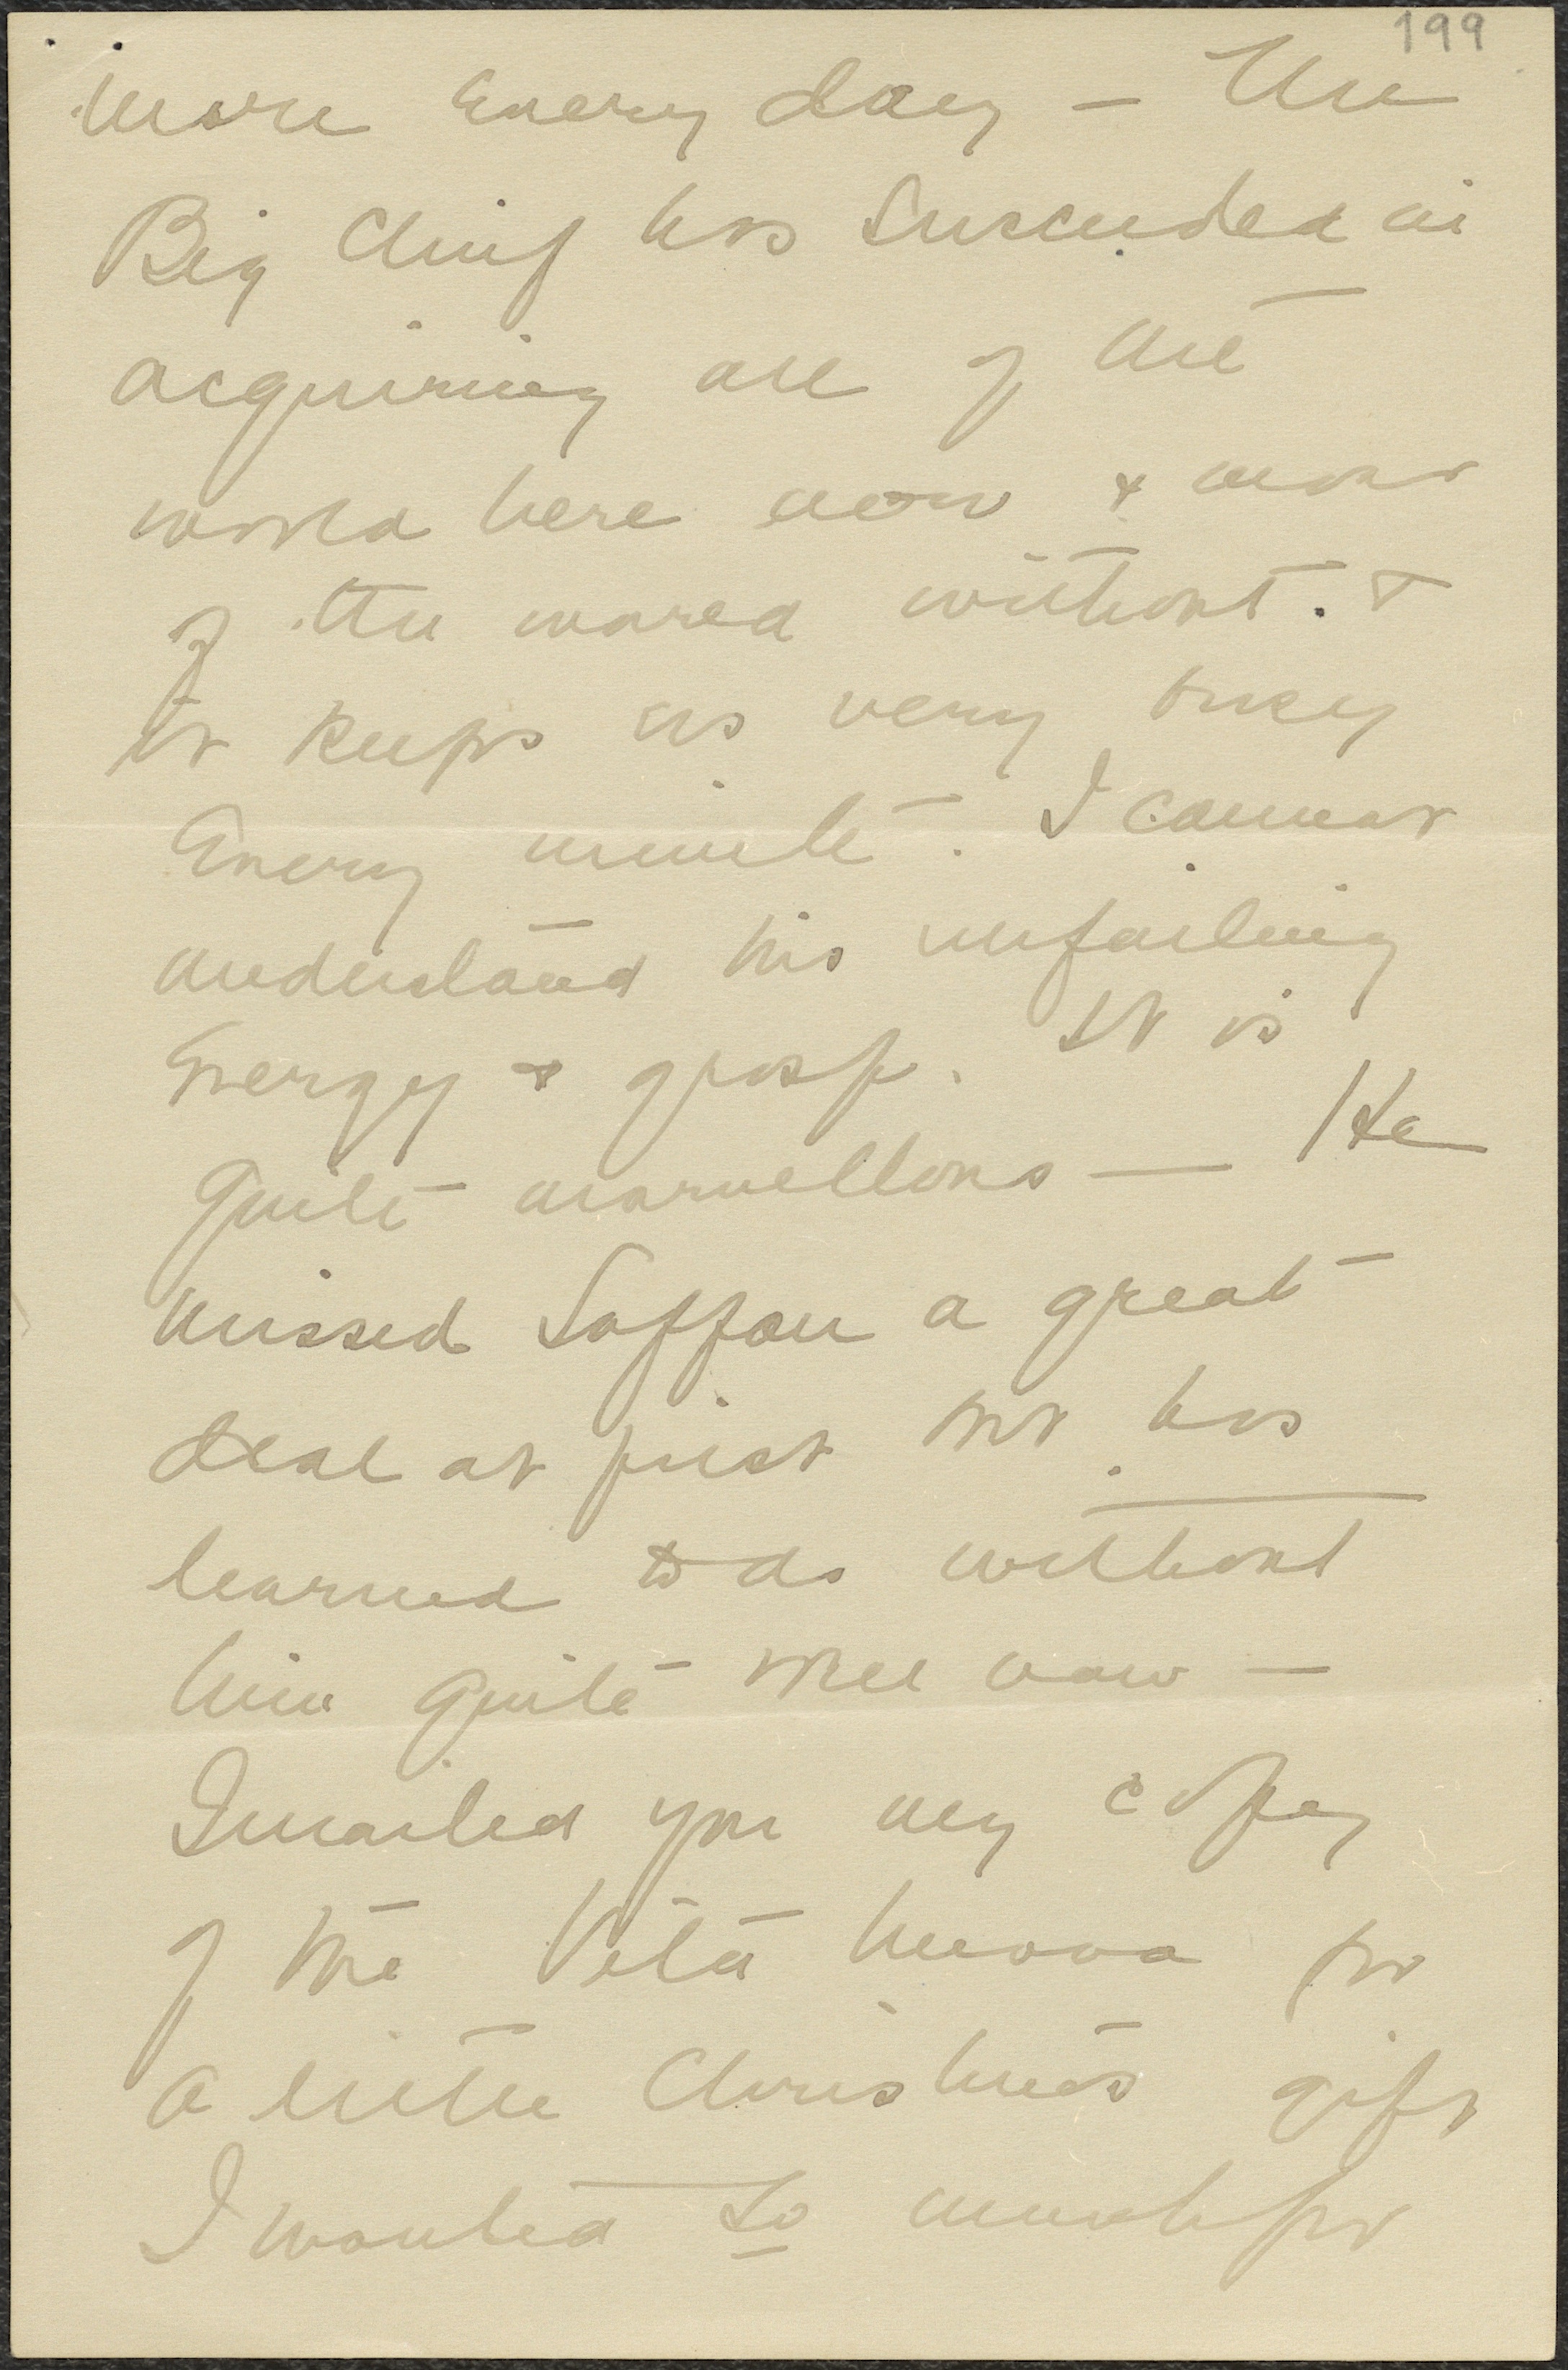 199
more every day — The
Big Chief has succeeded in
acquiring all of the
world here now & most
of the world without. &
it keeps us very busy
Every minute. I cannot
understand his unfailing
Energy & grasp. It is
quite marvellous — He
missed Laffan a great
deal at first but has
learned to do without
him quite well now —
I mailed you my copy
of the Vita Nuova for
a little Christmas gift
I wanted so much for